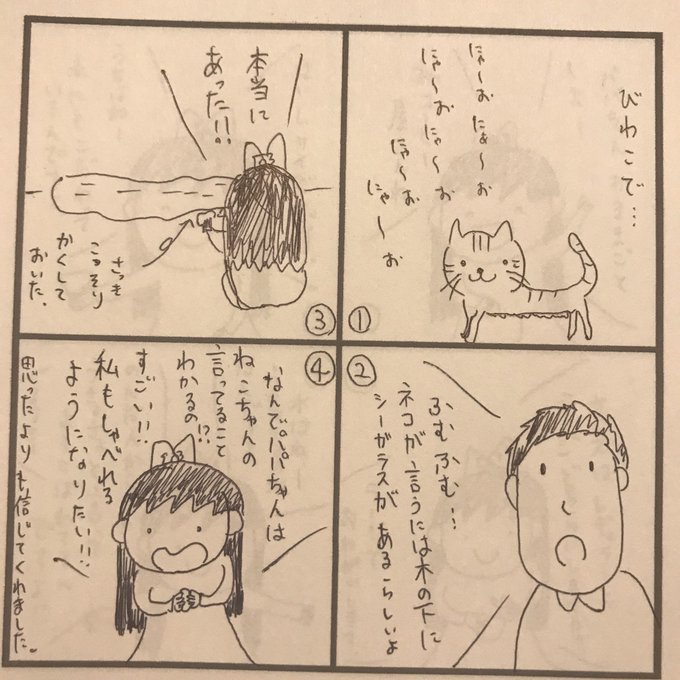 ①
びわこで…
にゃ〜お にゃ〜お
にゃ〜お にゃ〜お
にゃ〜お
にゃ〜お
②
ふむふむ…
ネコが言うには木の下に
シーガラスがあるらしいよ
③
本当に
あった!!
さっき
こっそり
かくして
おいた。
④
なんでパパちゃんは
ねこちゃんの
言ってること
わかるの!?
すごい!!
私もしゃべれる
ようになりたい!!
思ったよりも信じてくれました。